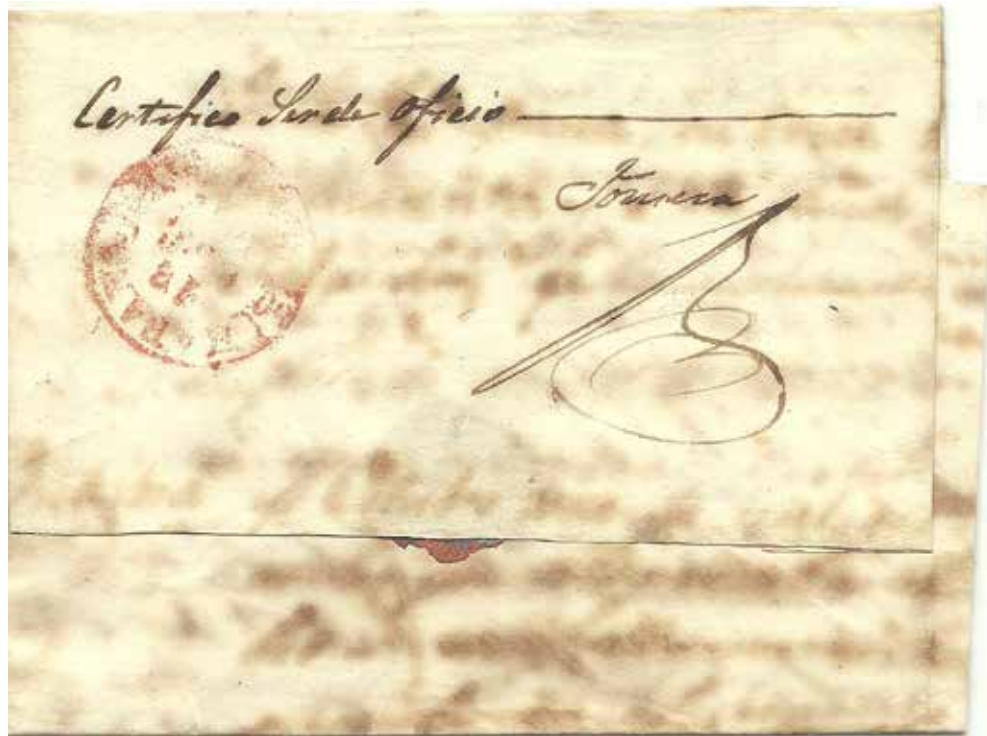 Certifico Ser de oficio
Fonseca
12